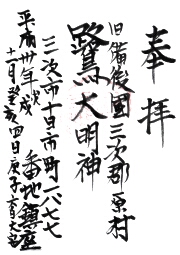 奉拝
旧備後國三次郡原村
鷺大明神
三次市十日市町一八七七
番地鎮座
平成卅年戊戌
十一月癸亥四日庚子